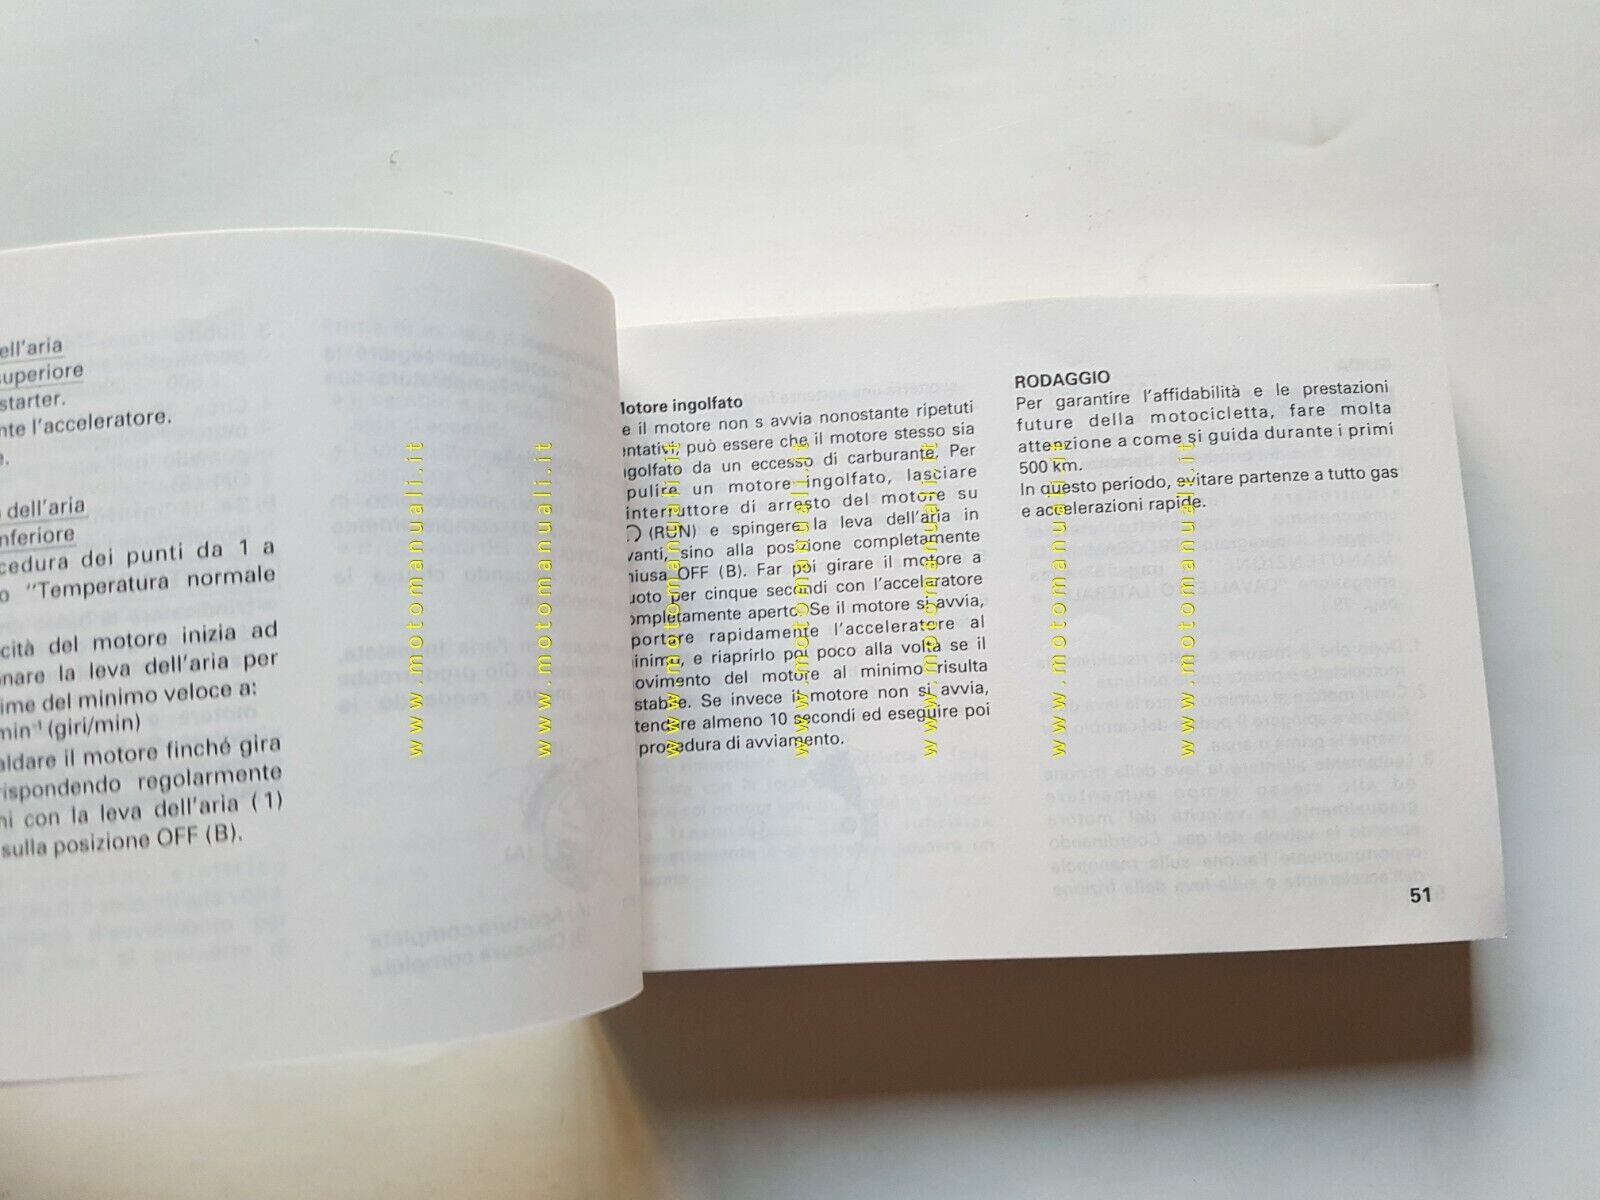 ell'aria
superiore
starter.
nte l'acceleratore.
e.
dell'aria
nferiore
cedura dei punti da 1 a
o "Temperatura normale
cità del motore inizia ad
nare la leva dell'aria per
ime del minimo veloce a:
min⁻¹ (giri/min)
aldare il motore finché gira
rispondendo regolarmente
ni con la leva dell'aria (1)
sulla posizione OFF (B).
Motore ingolfato
e il motore non s avvia nonostante ripetuti
entativi, può essere che il motore stesso sia
ngolfato da un eccesso di carburante. Per
pulire un motore ingolfato, lasciare
interruttore di arresto del motore su
(RUN) e spingere la leva dell'aria in
vanti, sino alla posizione completamente
hiusa OFF (B). Far poi girare il motore a
uoto per cinque secondi con l'acceleratore
ompletamente aperto. Se il motore si avvia,
portare rapidamente l'acceleratore al
inimo, e riaprirlo poi poco alla volta se il
ovimento del motore al minimo risulta
stabile. Se invece il motore non si avvia,
tendere almeno 10 secondi ed eseguire poi
procedura di avviamento.
RODAGGIO
Per garantire l'affidabilità e le prestazioni
future della motocicletta, fare molta
attenzione a come si guida durante i primi
500 km.
In questo periodo, evitare partenze a tutto gas
e accelerazioni rapide.
51
www.motomanuali.it
www.motomanuali.it
www.motomanuali.it
www.motomanuali.it
www.motomanuali.it
www.motomanuali.it
www.motomanuali.it